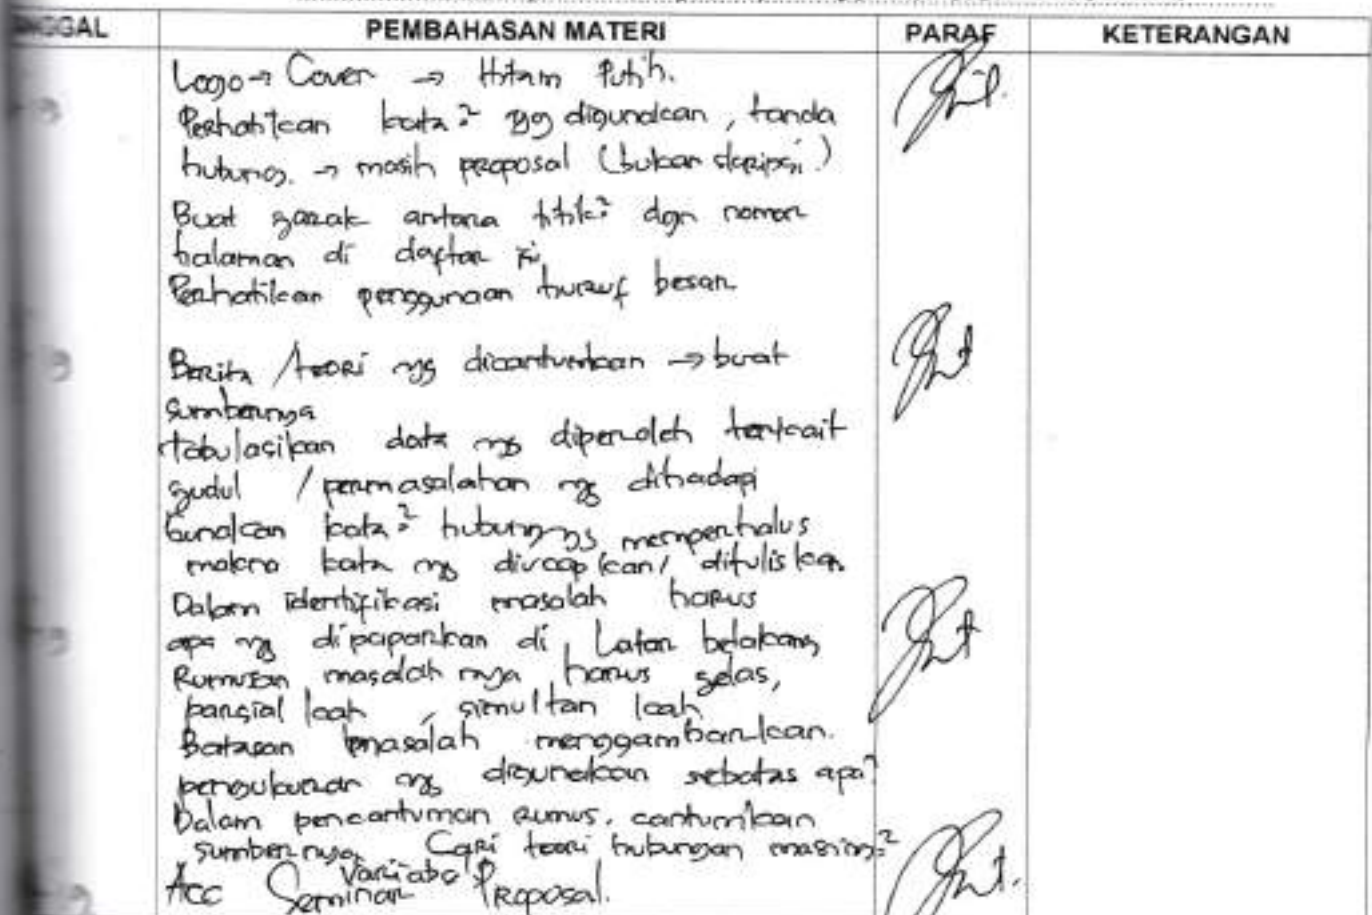 NGGAL PEMBAHASAN MATERI PARAF KETERANGAN
Logo → Cover → Hitam Putih.
Perhatikan kata² yg digunakan, tanda
hubung. → masih proposal (bukan skripsi)
Buat jarak antara titik² dgn nomor
halaman di daftar isi
Perhatikan penggunaan huruf besar
Berita / teori yg dicantumkan → buat
sumbernya
tabulasikan data yg diperoleh terkait
judul / permasalahan yg dihadapi
Gunakan kata² hubung yg memperhalus
makna kata yg diucapkan / dituliskan
Dalam identifikasi masalah harus
apa yg dipaparkan di Latar belakang
Rumusan masalah nya harus jelas,
parsial kah, simultan kah
Batasan masalah menggambarkan.
pengukuran yg digunakan sebatas apa?
Dalam pencantuman rumus. cantumkan
sumber nya. Cari teori hubungan masing²
Variabel
Acc Seminar Proposal.